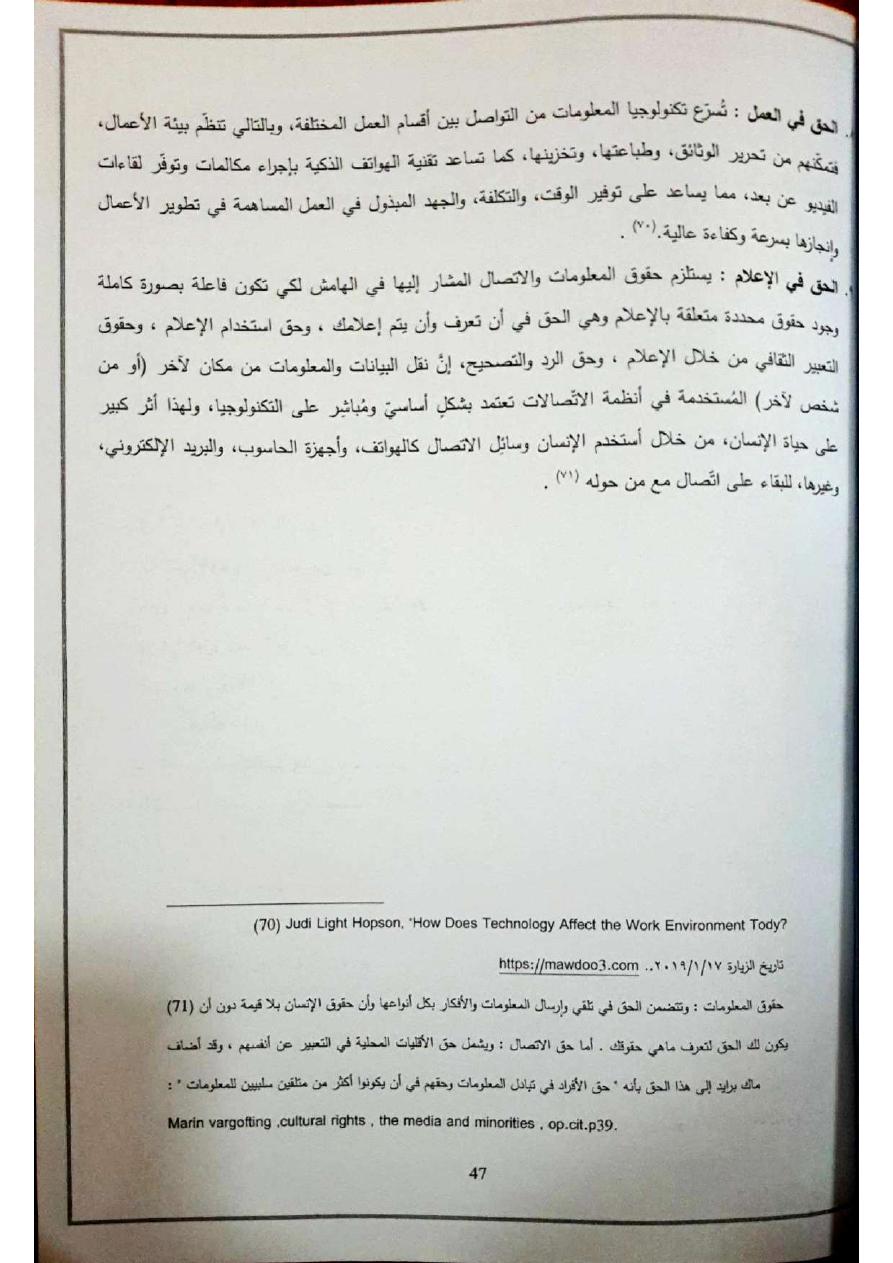 الحق في العمل : تُسرّع تكنولوجيا المعلومات من التواصل بين أقسام العمل المختلفة، وبالتالي تنظّم بيئة الأعمال،
فتمكّنهم من تحرير الوثائق، وطباعتها، وتخزينها، كما تساعد تقنية الهواتف الذكية بإجراء مكالمات وتوفّر لقاءات
الفيديو عن بعد، مما يساعد على توفير الوقت، والتكلفة، والجهد المبذول في العمل المساهمة في تطوير الأعمال
وإنجازها بسرعة وكفاءة عالية.(٧٠) .
الحق في الإعلام : يستلزم حقوق المعلومات والاتصال المشار إليها في الهامش لكي تكون فاعلة بصورة كاملة
وجود حقوق محددة متعلقة بالإعلام وهي الحق في أن تعرف وأن يتم إعلامك ، وحق استخدام الإعلام ، وحقوق
التعبير الثقافي من خلال الإعلام ، وحق الرد والتصحيح، إنَّ نقل البيانات والمعلومات من مكان لآخر (أو من
شخص لآخر) المُستخدمة في أنظمة الاتّصالات تعتمد بشكلٍ أساسيّ ومُباشِر على التكنولوجيا، ولهذا أثر كبير
على حياة الإنسان، من خلال أستخدم الإنسان وسائِل الاتصال كالهواتف، وأجهزة الحاسوب، والبريد الإلكتروني،
وغيرها، للبقاء على اتّصال مع من حوله (٧١) .
(70) Judi Light Hopson, "How Does Technology Affect the Work Environment Tody?
تاريخ الزيارة ٢٠١٩/١/١٧.. https://mawdoo3.com
حقوق المعلومات : وتتضمن الحق في تلقي وإرسال المعلومات والأفكار بكل أنواعها وأن حقوق الإنسان بلا قيمة دون أن (71)
يكون لك الحق لتعرف ماهي حقوقك . أما حق الاتصال : ويشمل حق الأقليات المحلية في التعبير عن أنفسهم ، وقد أضاف
ماك برايد إلى هذا الحق بأنه " حق الأفراد في تبادل المعلومات وحقهم في أن يكونوا أكثر من متلقين سلبيين للمعلومات " :
Marin vargofting ,cultural rights , the media and minorities , op.cit.p39.
47